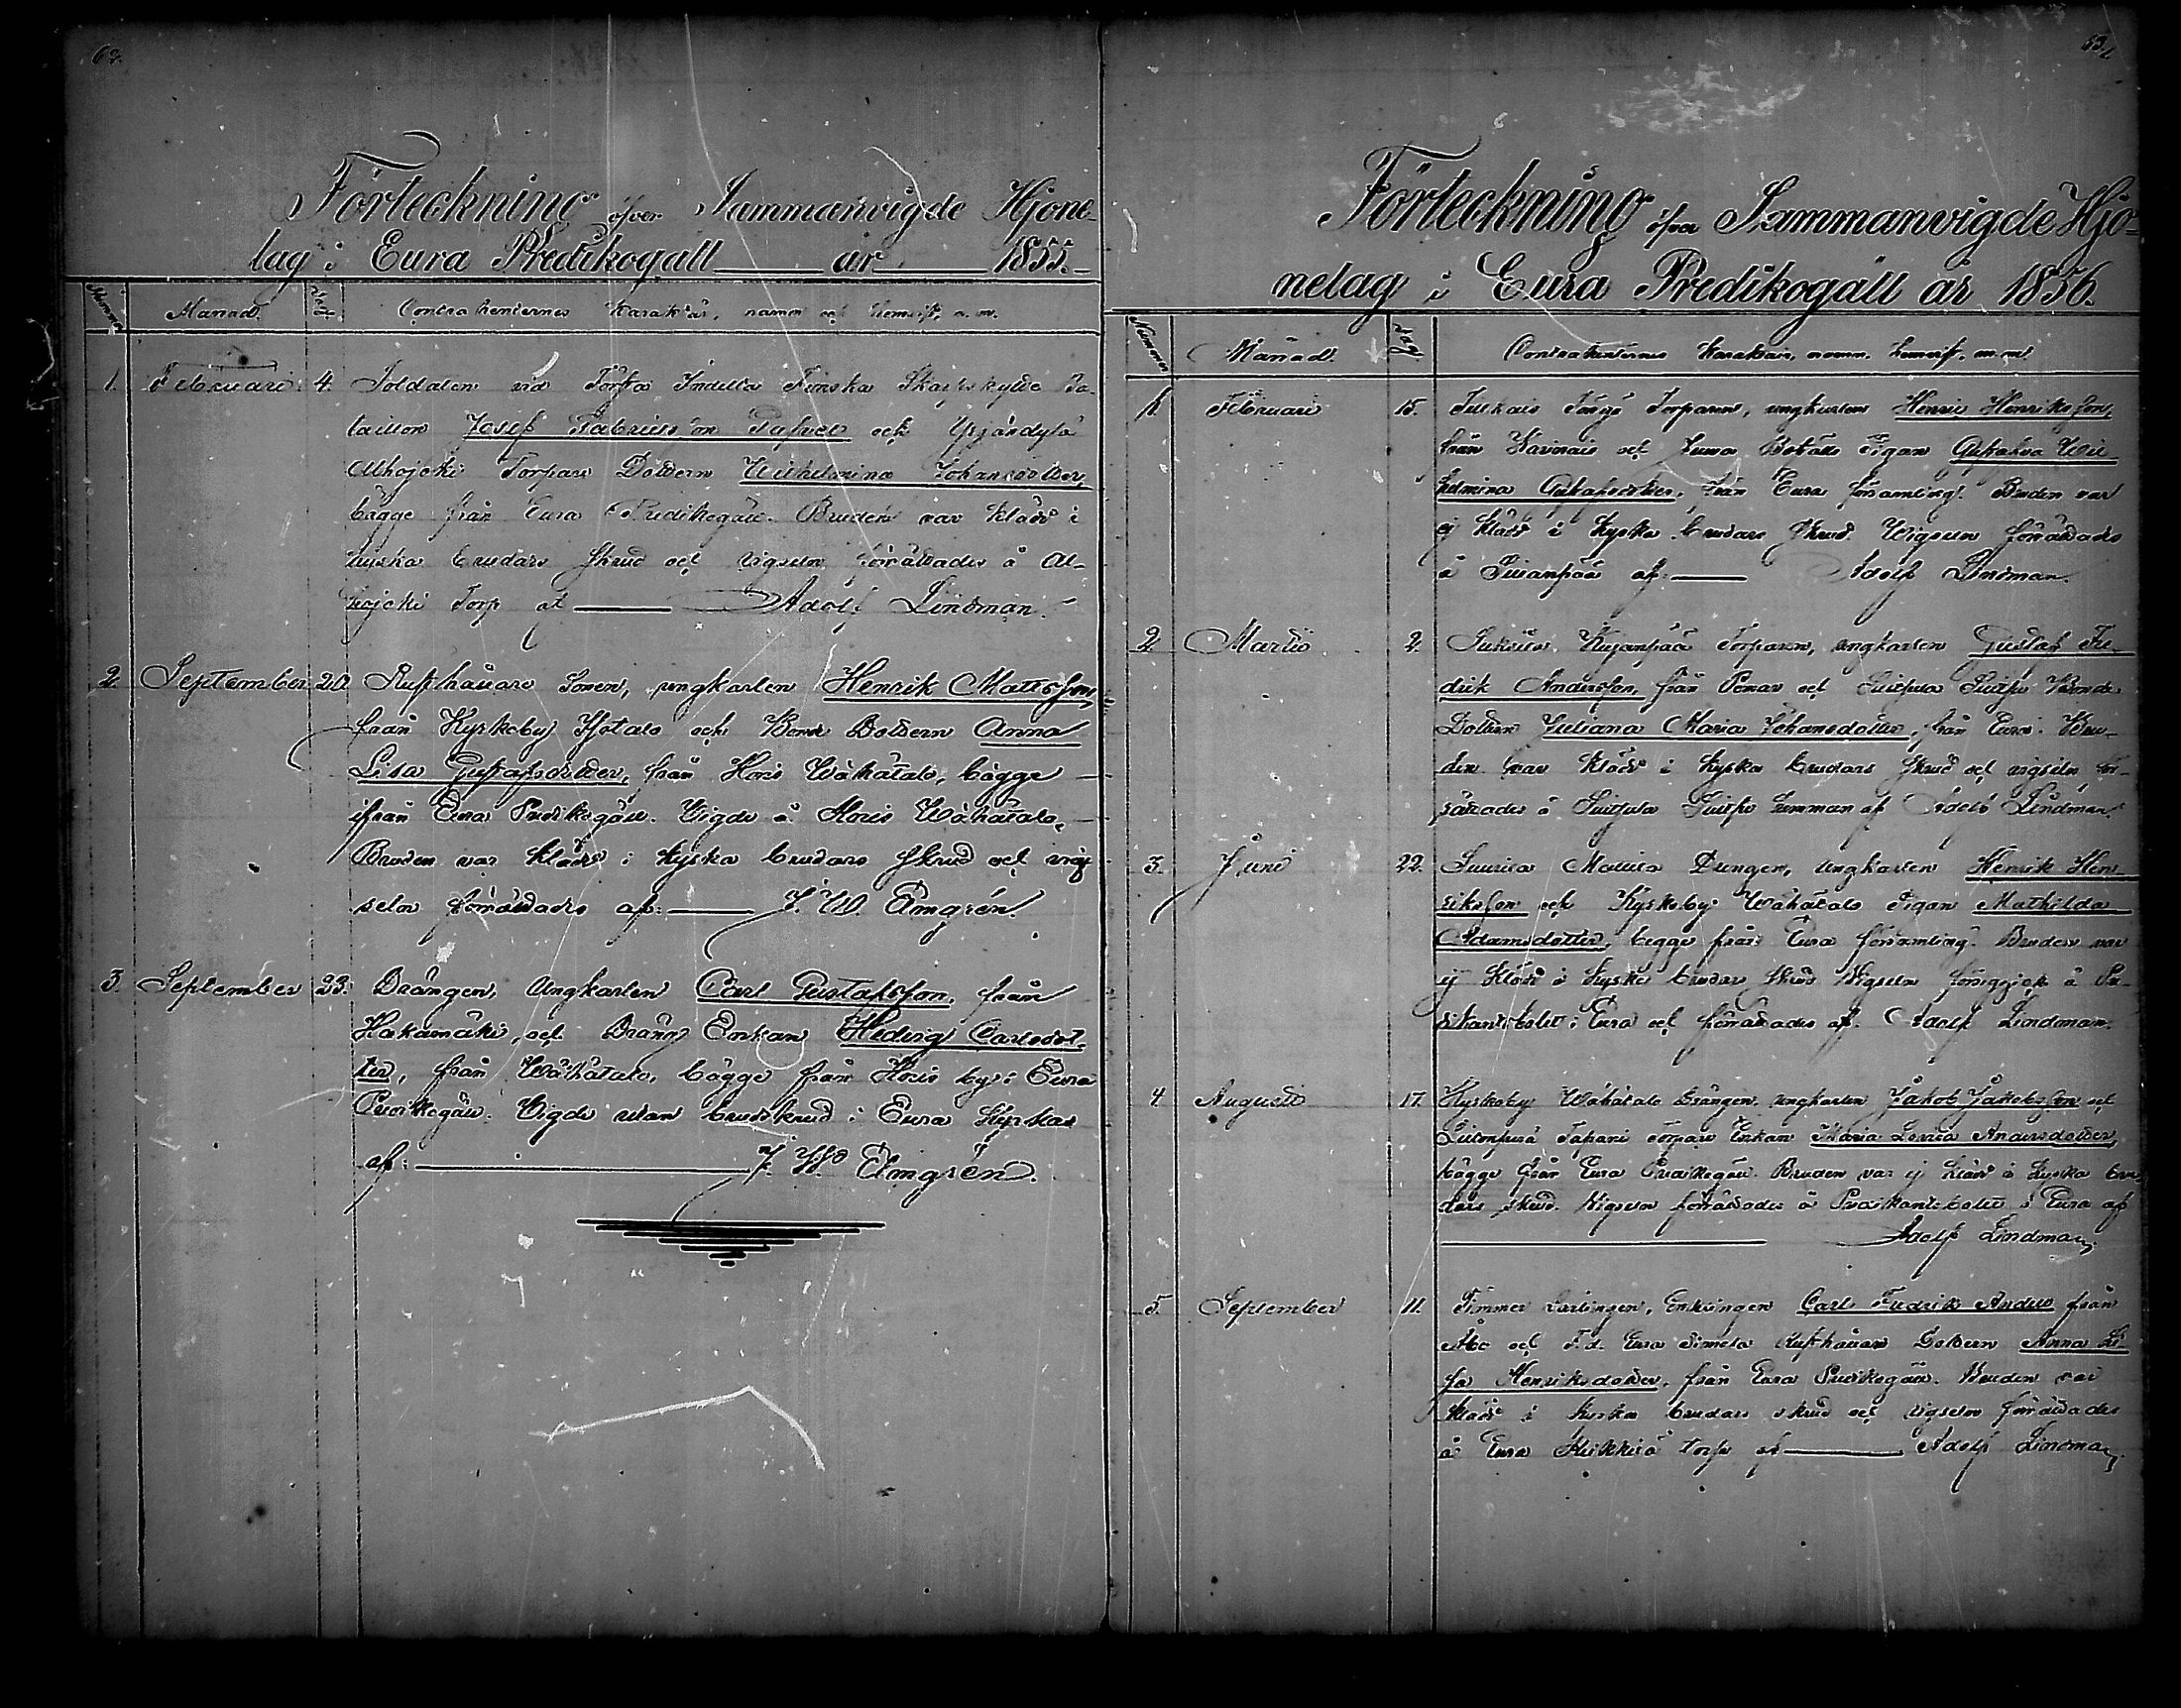 62.
Förteckning öfver Sammanvigde Hjone-
lag i Eura Predikogäll år 1855.
Nummer Månad. Dag Contrahenternes Karaktär, namn och hemvist, m. m.
1. Februari 4. Soldaten vid Första Indelta Finska Skarpskytte Ba-
taillon Josef Fabriksson och
Torpare Dottren Wilhelmina Johansdotter,
bägge från Eura Predikogäll. Bruden var klädd i
kyska brudars skrud och vigseln förrättades å Al-
hojoki Torp af Adolf Lindman.
2. September 20. Rusthållare Sonen, ungkarlen Henrik Mattsson,
från Kyrkoby och Bonde Dottren Anna
Lisa Gustafsdotter, från Horis Wähätalo, bägge
ifrån Eura Predikogäll. Vigde å Horis Wähätalo.
Bruden var klädd i kyska brudars skrud och vig-
seln förrättades af: J. W. Elmgrén.
3. September 23. Drängen, Ungkarlen Carl Gustafsson, från
Hakamäki, och Dräng Enkan Hedvig Carlsdot-
ter, från Wähätalo, bägge från Horis by i Eura
Predikogäll. Vigde utan brudskrud i Eura Kyrka
af: J. W. Elmgrén.
63.
Förteckning öfver Sammanvigde Hjo-
nelag i Eura Predikogäll år 1856.
Nummer Månad. Dag Contrahenternes Karaktär, namn, hemvist, m. m.
1. Februari 15. Torparen, ungkarlen Henric Henriksson,
från och Pigan Gustafva Wil-
helmina Gustafsdotter, från Eura församling. Bruden var
ej klädd i kyska brudars skrud. Vigseln förrättades
å af: Adolf Lindman.
2. Martii 2. Torparen, ungkarlen Gustaf Fre-
drik Andersson, från och Bonde
Dottren Juliana Maria Johansdotter, från Eura. Bru-
den var klädd i kyska brudars skrud och vigseln för-
rättades å af Adolf Lindman.
3. Juni 22. Drengen, Ungkarlen Henrik Hen-
riksson och Kyrkoby Wähätalo Pigan Mathilda
Adamsdotter, begge från Eura församling. Bruden var
ej klädd i kyska brudars skrud. Vigseln föregick å Pre-
dikants bolet i Eura och förrättades af Adolf Lindman.
4. Augusti 17. Kyrkoby Wähätalo Drängen, ungkarlen Jakob Jakobsson och
Tapani Torpare Enkan Maria Lovisa Andersdotter,
bägge från Eura Predikogäll. Bruden var ej klädd i kyska bru-
dars skrud. Vigseln förrättades å Predikants bolet i Eura af
Adolf Lindman.
5. September 11. Timmer Lärlingen, Enklingen Carl Fredrik från
Åbo och F. d. Eura Simola Rusthållare Dottren Anna Li-
sa Henriksdotter, från Eura Predikogäll. Bruden var
klädd i kyska brudars skrud och vigseln förrättades
å Eura torp af Adolf Lindman.